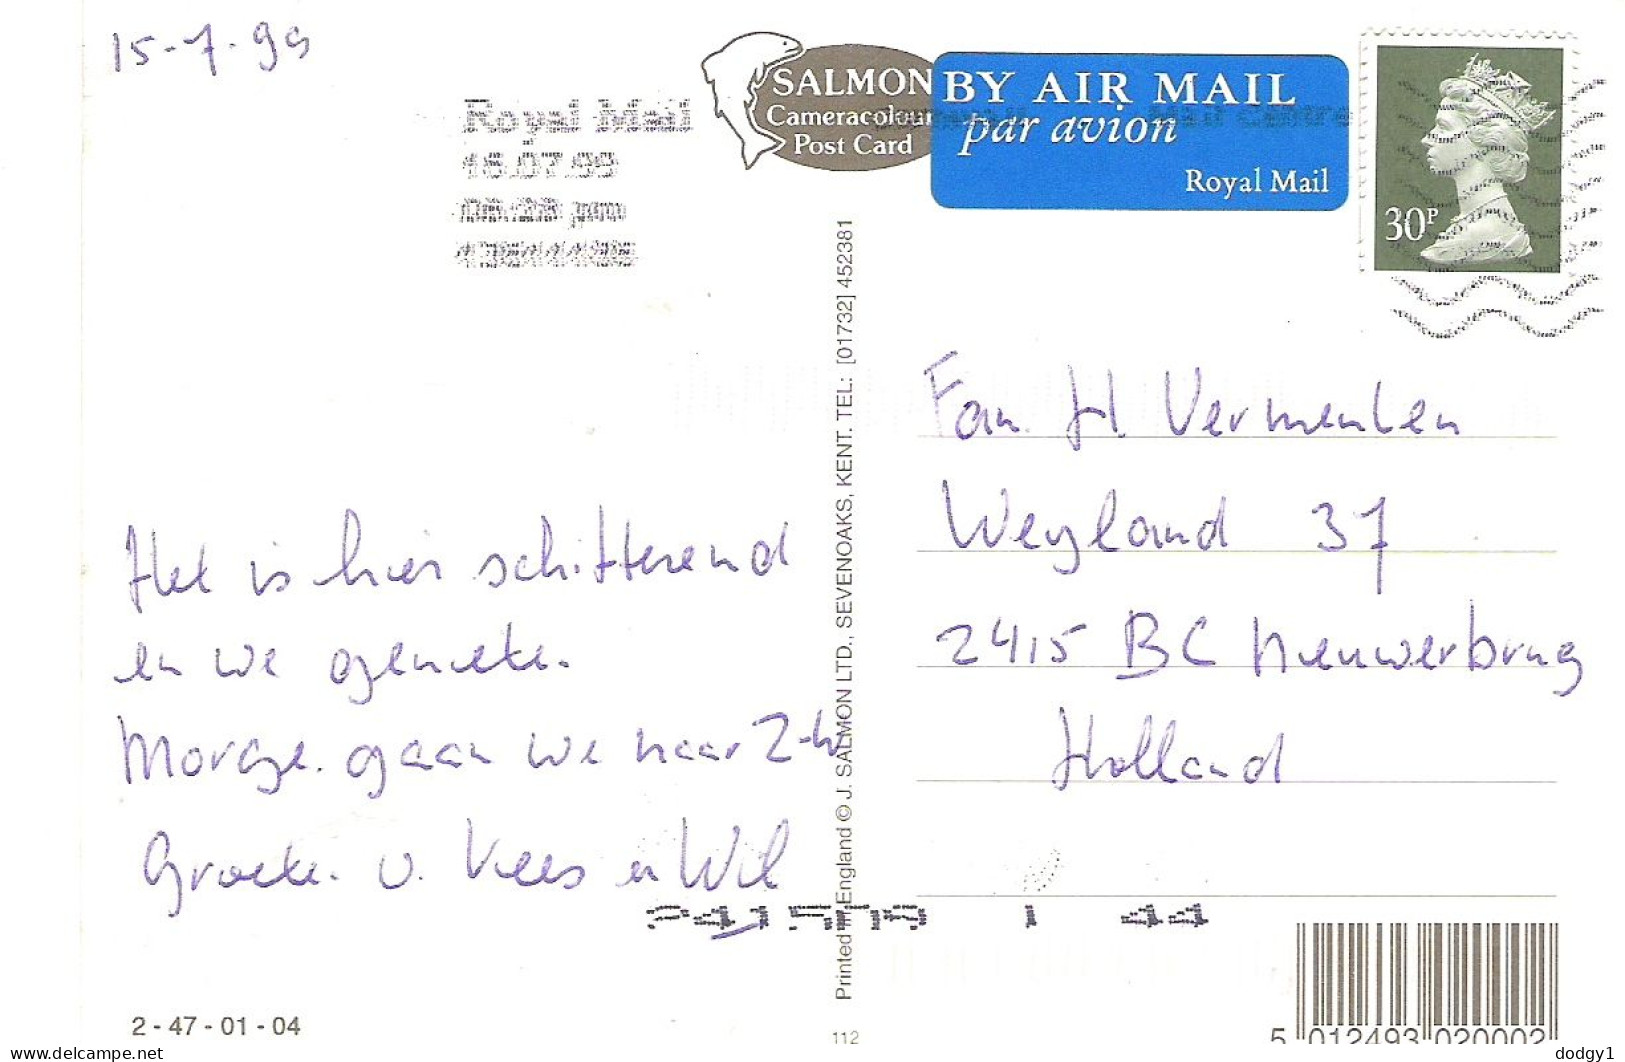 15-7-99
Royal Mail
16.07.99
SALMON
Cameracolour
Post Card
BY AIR MAIL
par avion
Royal Mail
30P
Het is hier schitterend
en we geniete.
Morge. gaan we naar Z-W
Groete. v. Kees en Wil
2 - 47 - 01 - 04
Printed in England © J. SALMON LTD., SEVENOAKS, KENT. TEL: [01732] 452381
112
Fam. H Vermeulen
Weyland 37
2415 BC Nieuwerbrug
Holland
5 012493 020002
dodgy1
delcampe.net